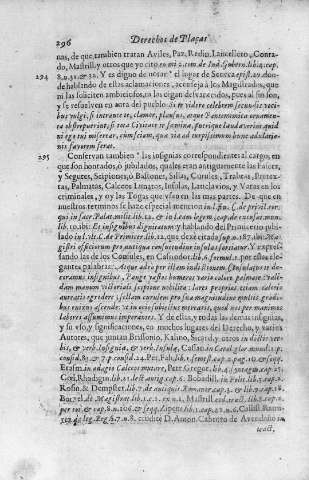 296 Derechos de Plazas
nas, de que tambien tratan Aviles, Paz, Redin, Lancellero, Conra-
do, Mastrill. y otros que yo cito en mi 2. tom. de Ind. Gubern. lib. 4. cap.
294 8. n. 31. & 32. Y es digno de notar el lugar de Seneca epist. 29. don-
de hablando de estas aclamaciones, aconseja à los Magistrados, que
ni las soliciten ambiciosos, ni las oigan desvanecidos, pues al fin son,
y se resuelven en aura del pueblo. Si te videro celebrem secundis voci-
bus vulgi, si intrante te, clamor, plausus, atque Pantomimica ornamen-
ta obstrepuerint, si tota Civitate te fœmina, puerique laudaverint quid
ni ego tui miserear, cum sciam, quæ via ad istum
favorem ferat.
295 Conservan tambien las insignias correspondientes al cargo, en
que son honrados, ò jubilados, quales eran antiguamente las Fasces,
y Segures, Scipiones, ò Bastones, Sillas, Curules, Trabeas, Pretextas,
Palmatos, Calceos Lunatos, Insulas, Laticlavios, y Varas en los
criminales, y oy las Togas que usan en las mas partes. De que en
nuestros terminos se haze especial mencion in l. fin. C. de privil. eor.
qui in sacr. Palat. milit. lib. 12. & in
lib. 10. ibi: Et insignibus dignitatum y hablando del Primicerio jubi-
lado in l. C. de Primicer. lib. 12. que dexè citada sup. n. 187. ibi: Magi-
stri officiorum pro antiqua consuetudine insulas sortiatur. Y expres-
sando las de los Consules, en Casiodor. lib. 6. formul. 1. por estas ele-
gantes palabras: Atque adeo per illam indictionem Consulatus te de-
coramus insignibus. Pange vasto humeros vario colore palmatæ. Vali-
dam manum victoriali scipione nobilita: lares proprios etiam calceis
auratis egredere: sellam curulem pro sua magnitudine multis gradi-
bus enixus ascende
labores assumimus imperantes. Y de ellas, y todas las demas insignias,
y su uso, y significaciones, en muchos lugares del Derecho, y varios
Autores, que juntan Brisonio, Kalino, Sicard. y otros in dictis ver-
bis, & verb. Insignia, & verb. Insulæ, Cassan. in Catal. glor. mundi 1. p.
consid. & 7. p. consid. 24. Pet. Fab. lib. 1. semest. cap. 2. pag. 19. & seqq.
Erasm. in adagio Calceos mutare, Petr. Gregor. lib. 4.
Cœl. Rhodigin. lib. 12. lect. antiq. cap. 6. Bobadill. in Polit. lib. 3. cap. 2.
Rosin. & Dempster. lib. 7. de antiquit. Romanor. cap. 3. & lib. 9. cap. 28.
de Magistrat. lib. 1. c. 2. ex n. 1. Mastrill. lib. 2. cap.
per tot. & cap. 8. n. 106. & seqq. Zipeus lib. 1. cap. 22. n. 6. Collib. Ramirez
de leg. Reg. §. 7. n. 8. eruditè D. Anton. Cabreros de Avendaño in
tract.